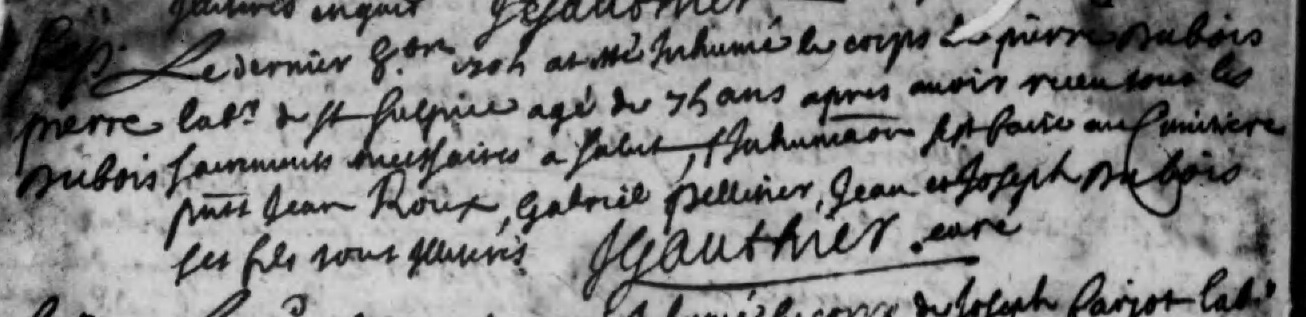 illiterés enquis JGauthier
Sep. Le dernier 8.bre 170h at été Inhumé le corps de pierre Dubois
pierre lab.r de St Sulpice agé de 7h ans apres avoir receu tous les
Dubois sacrements necessaires a salut, l'Inhumaõn s'est faite au Cimitiere
pnts Jean Roux, Gabriel pellisier, Jean et Joseph Dubois
ses fils tous illiterés JGauthier curé
le corps de Joseph lab.r